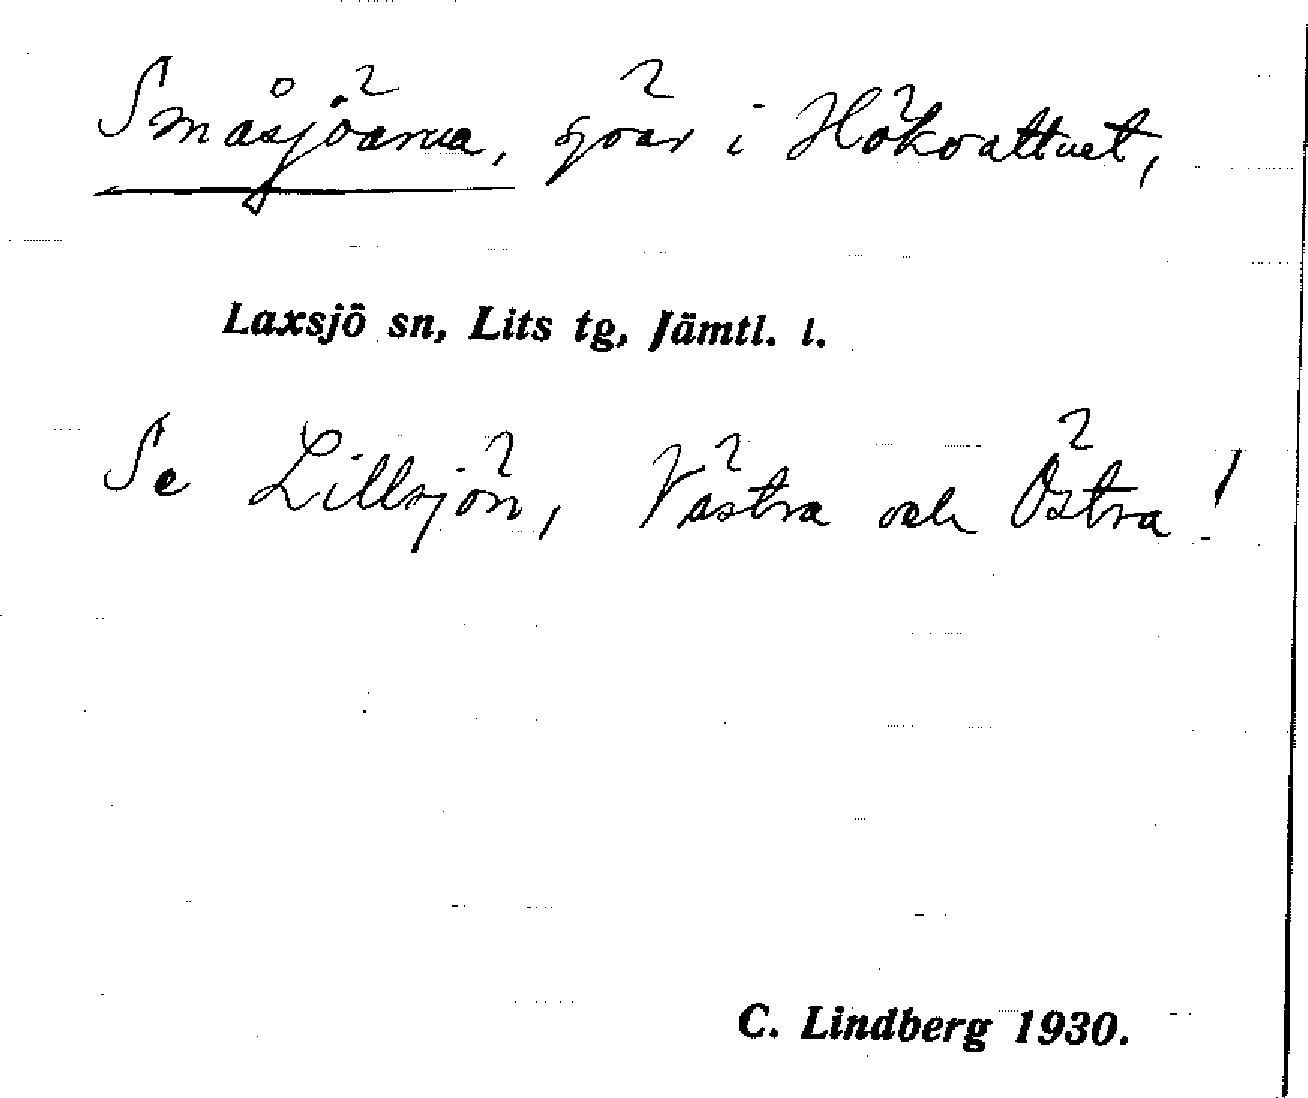 Småsjöarna, sjöar i Hökvattnet,
Laxsjö sn, Lits tg, Jämtl. l.
Se Lillsjön, Västra och Östra!
C. Lindberg 1930.